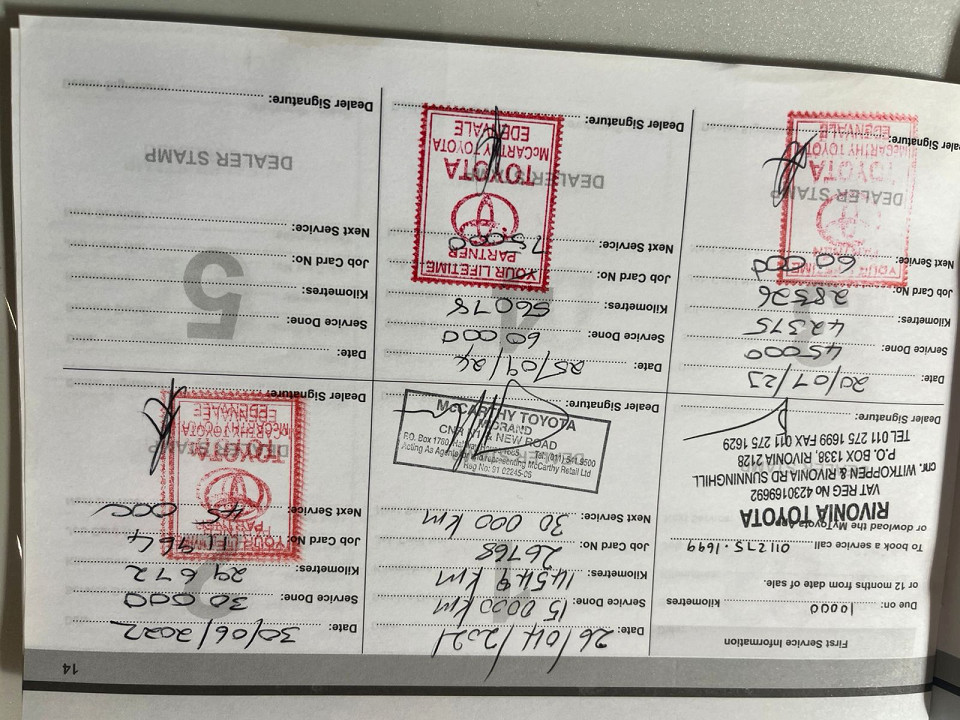 14
First Service Information
Due: on: 10000 kilometres
or 12 months from date of sale.
To book a service call 011 275·1699
or download the MyToyota App
RIVONIA TOYOTA
VAT REG No 4230169692
cnr. WITKOPPEN & RIVONIA RD SUNNINGHILL
P.O. BOX 1338, RIVONIA 2128
TEL 011 275 1699 FAX 011 275 1629
Dealer Signature:
Date: 26/04/2021
Service Done: 15 0000 km
Kilometres: 14548 km
Job Card No: 26768
Next Service: 30 000 km
1
DEALER STAMP
McCARTHY TOYOTA
MIDRAND
CNR N1 & NEW ROAD
P.O. Box 1780,
Tel: (011) 541 9500
Acting As Agents for and representing McCarthy Retail Ltd
Reg No: 91 02245-06
Dealer Signature:
Date: 30/06/2022
Service Done: 30 000
Kilometres: 29672
Job Card No:
Next Service: 45 000
2
YOUR LIFETIME
PARTNER
DEALER STAMP
TOYOTA
McCARTHY TOYOTA
EDENVALE
Dealer Signature:
Date: 20/07/23
Service Done: 45000
Kilometres: 42375
Job Card No: 28526
Next Service: 60 000
YOUR LIFETIME
PARTNER
DEALER STAMP
TOYOTA
McCARTHY TOYOTA
EDENVALE
Dealer Signature:
Date: 25/09/24
Service Done: 60 000
Kilometres: 56078
Job Card No:
Next Service: 75000
YOUR LIFETIME
PARTNER
DEALER STAMP
TOYOTA
McCARTHY TOYOTA
EDENVALE
Dealer Signature:
Date:
Service Done:
Kilometres:
Job Card No:
Next Service:
5
DEALER STAMP
Dealer Signature: